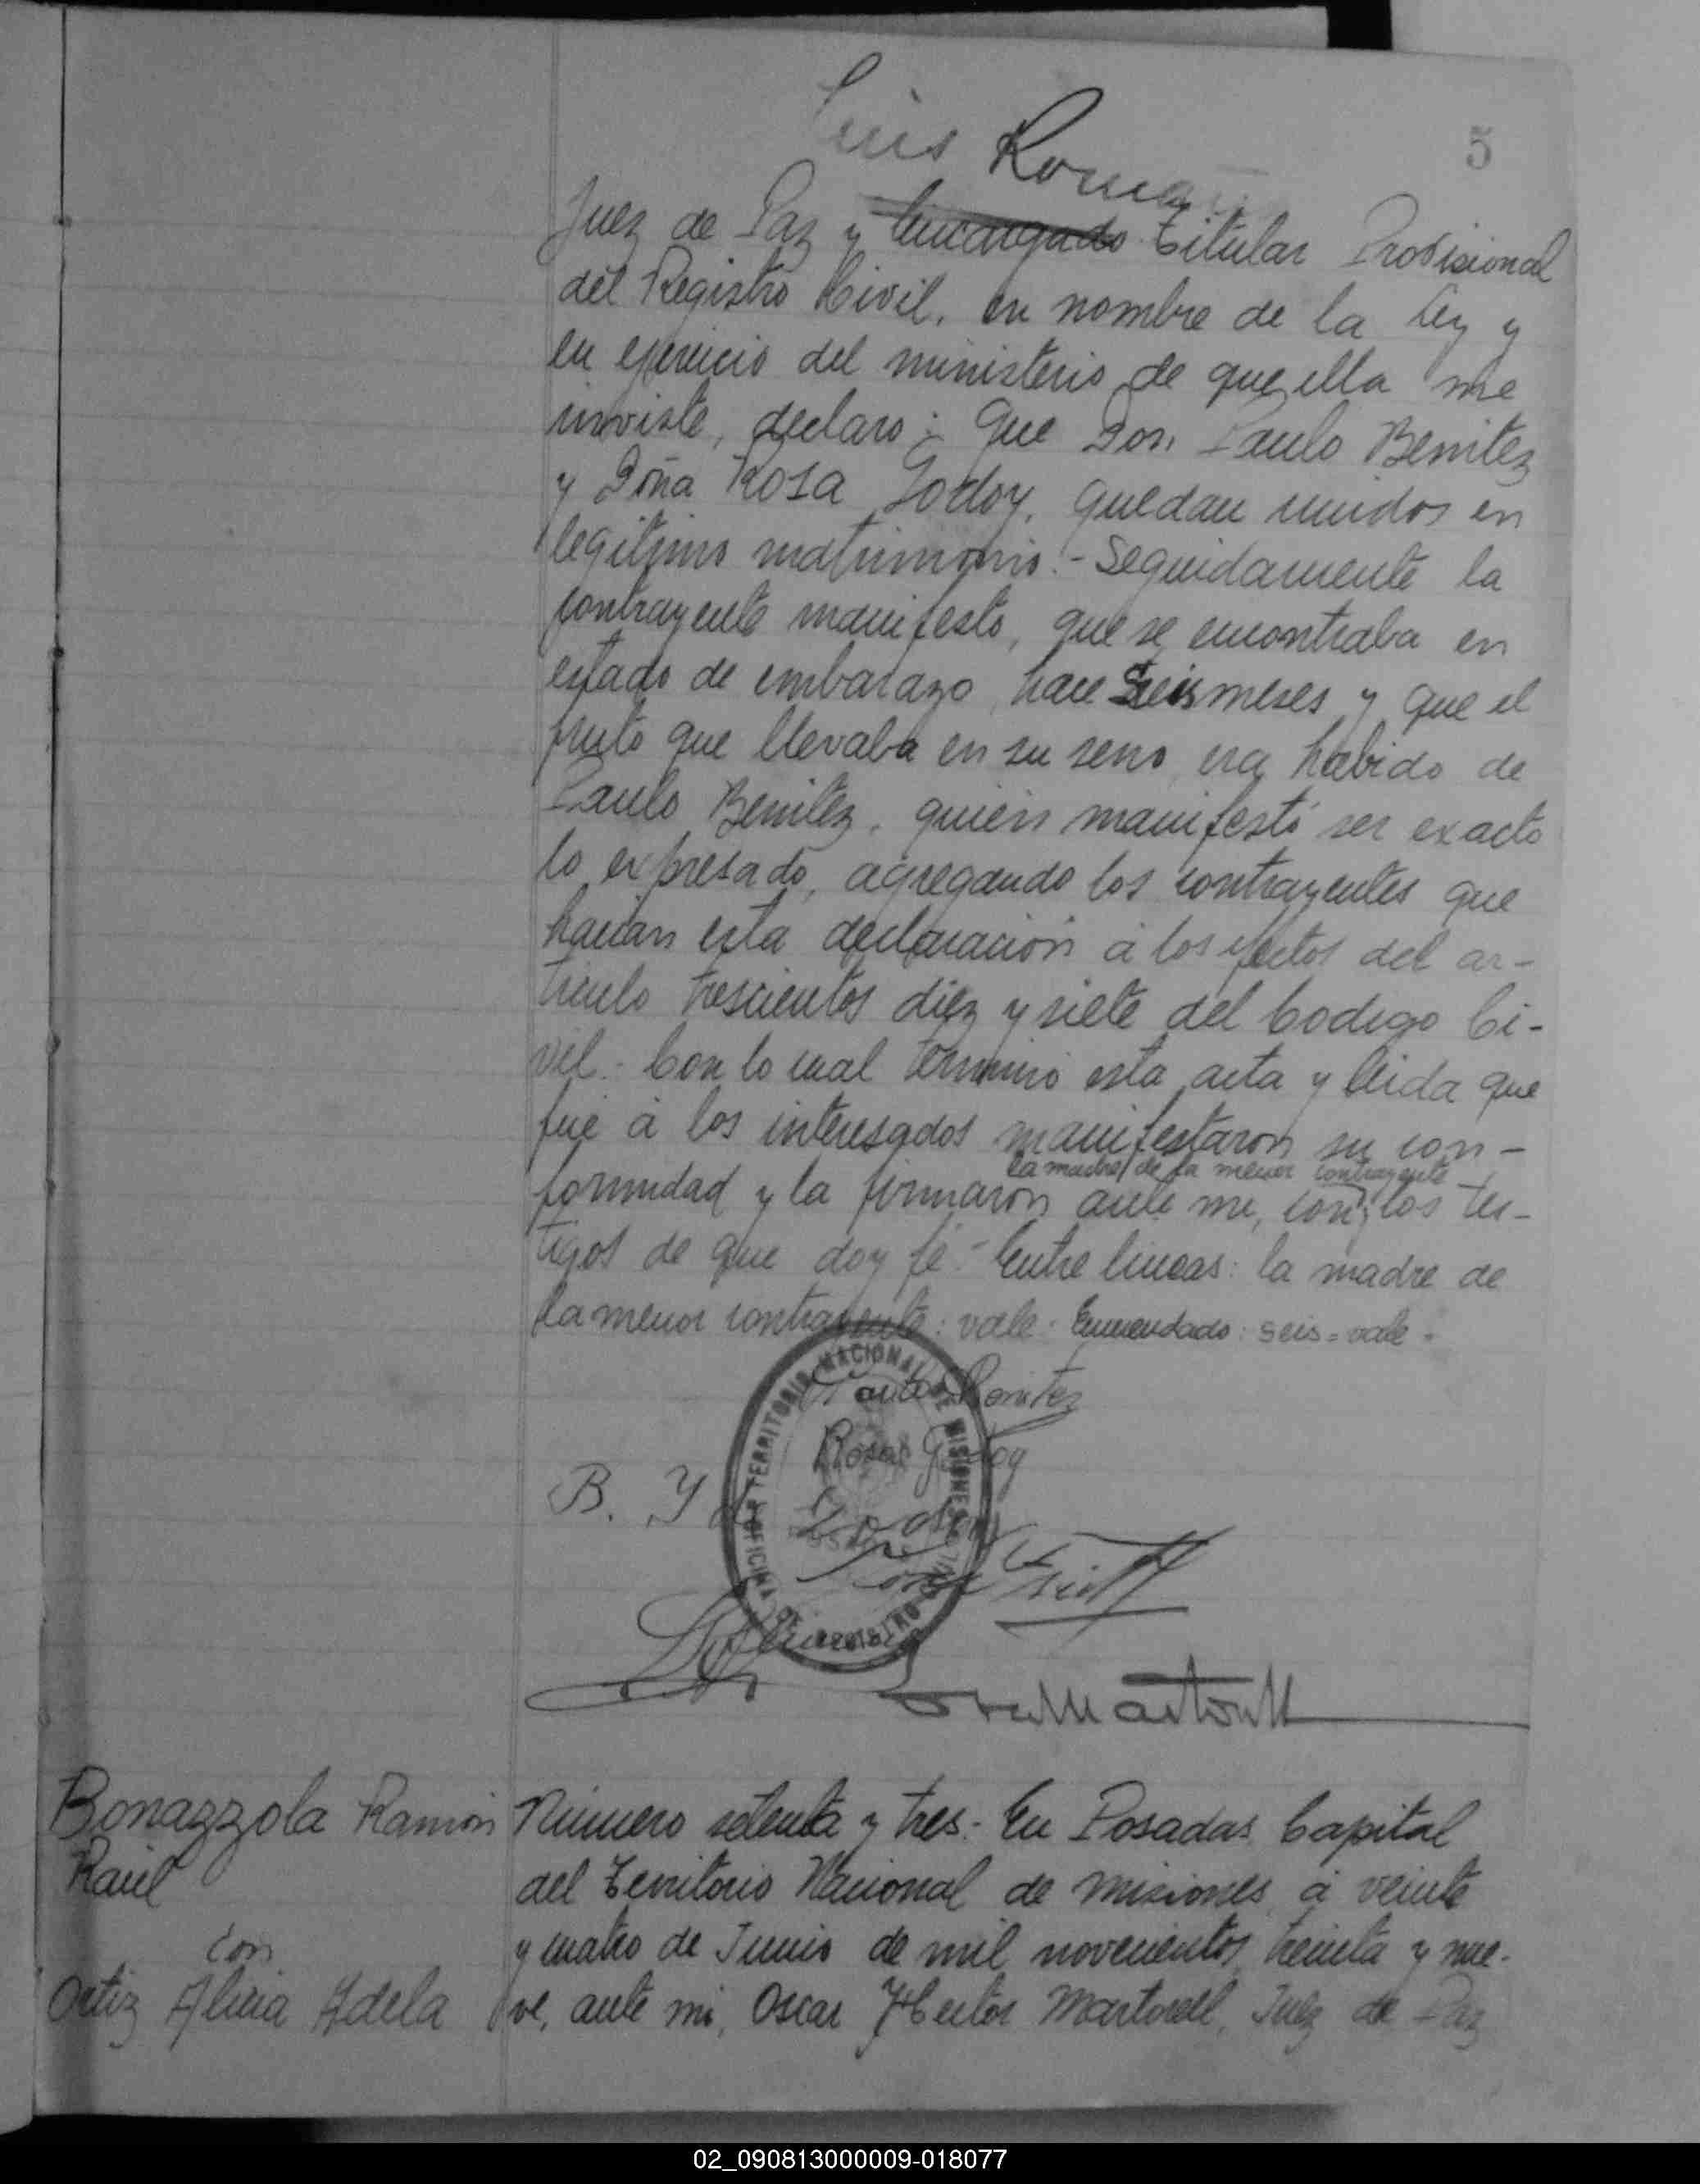 Luis Roman
5
Juez de Paz y Encargado Titular Provisional
del Registro Civil, en nombre de la Ley y
en ejercicio del ministerio de que ella me
inviste, declaro: Que Don Paulo Benitez
y Doña Rosa Godoy, quedan unidos en
legitimo matrimonio.- Seguidamente la
contrayente manifesto, que se encontraba en
estado de embarazo, hace Seis meses y que el
fruto que llevaba en su seno, era habido de
Paulo Benitez, quién manifestó ser exacto
lo expresado, agregando los contrayentes que
hacian esta declaración á los efectos del ar-
ticulo trescientos diez y siete del Codigo Ci-
vil.- Con lo cual terminó esta acta y leida que
fué á los interesados manifestaron su con-
la madre de la menor contrayente
formidad y la firmaron ante mi, con, los tes-
tigos de que doy fé - Entre lineas: la madre de
la menor contrayente: vale - Enmendado: seis = vale -
Paulo Benitez
Rosa Godoy
B. Y de Godoy
TERRITORIO NACIONAL DE MISIONES
OFICINA DE REGISTRO CIVIL
Bonazzola Ramón
Raúl
con
Ortiz Alicia Adela
Número setenta y tres.- En Posadas Capital
del Territorio Nacional de Misiones, á veinte
y cuatro de Junio de mil novecientos treinta y nue-
ve, ante mi, Oscar Hector Martorell, Juez de Paz
02_090813000009-018077